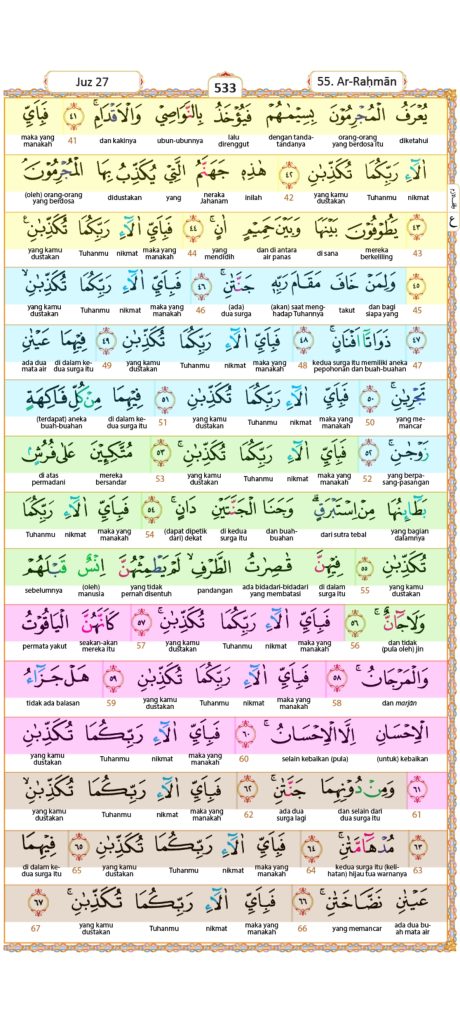 Juz 27
533
55. Ar-Raḥmān
يُعْرَفُ الْمُجْرِمُوْنَ بِسِيْمٰهُمْ فَيُؤْخَذُ بِالنَّوَاصِيْ وَالْاَقْدَامِۚ ٤١ فَبِاَيِّ
diketahui orang-orang yang berdosa itu dengan tanda-tandanya lalu direnggut ubun-ubunnya dan kakinya 41 maka yang manakah
اٰلَاۤءِ رَبِّكُمَا تُكَذِّبٰنِۚ ٤٢ هٰذِهٖ جَهَنَّمُ الَّتِيْ يُكَذِّبُ بِهَا الْمُجْرِمُوْنَۘ
nikmat Tuhanmu yang kamu dustakan 42 inilah neraka Jahanam yang didustakan (oleh) orang-orang yang berdosa
٤٣ يَطُوْفُوْنَ بَيْنَهَا وَبَيْنَ حَمِيْمٍ اٰنٍۚ ٤٤ فَبِاَيِّ اٰلَاۤءِ رَبِّكُمَا تُكَذِّبٰنِ
43 mereka berkeliling di sana dan di antara air panas yang mendidih 44 maka yang manakah nikmat Tuhanmu yang kamu dustakan
٤٥ وَلِمَنْ خَافَ مَقَامَ رَبِّهٖ جَنَّتٰنِۚ ٤٦ فَبِاَيِّ اٰلَاۤءِ رَبِّكُمَا تُكَذِّبٰنِۙ
45 dan bagi siapa yang takut (akan) saat menghadap Tuhannya (ada) dua surga 46 maka yang manakah nikmat Tuhanmu yang kamu dustakan
٤٧ ذَوَاتَآ اَفْنَانٍۚ ٤٨ فَبِاَيِّ اٰلَاۤءِ رَبِّكُمَا تُكَذِّبٰنِۚ ٤٩ فِيْهِمَا عَيْنٰنِ
47 kedua surga itu memiliki aneka pepohonan dan buah-buahan 48 maka yang manakah nikmat Tuhanmu yang kamu dustakan 49 di dalam kedua surga itu ada dua mata air
تَجْرِيٰنِۚ ٥٠ فَبِاَيِّ اٰلَاۤءِ رَبِّكُمَا تُكَذِّبٰنِ ٥١ فِيْهِمَا مِنْ كُلِّ فَاكِهَةٍ
yang memancar 50 maka yang manakah nikmat Tuhanmu yang kamu dustakan 51 di dalam kedua surga itu (terdapat) aneka buah-buahan
زَوْجٰنِۚ ٥٢ فَبِاَيِّ اٰلَاۤءِ رَبِّكُمَا تُكَذِّبٰنِۚ ٥٣ مُتَّكِـِٕيْنَ عَلٰى فُرُشٍۢ
yang berpasang-pasangan 52 maka yang manakah nikmat Tuhanmu yang kamu dustakan 53 mereka bersandar di atas permadani
بَطَاۤىِٕنُهَا مِنْ اِسْتَبْرَقٍۗ وَجَنَا الْجَنَّتَيْنِ دَانٍۚ ٥٤ فَبِاَيِّ اٰلَاۤءِ رَبِّكُمَا
yang bagian dalamnya dari sutra tebal dan buah-buahan di kedua surga itu (dapat dipetik dari) dekat 54 maka yang manakah nikmat Tuhanmu
تُكَذِّبٰنِ ٥٥ فِيْهِنَّ قٰصِرٰتُ الطَّرْفِۙ لَمْ يَطْمِثْهُنَّ اِنْسٌ قَبْلَهُمْ
yang kamu dustakan 55 di dalam surga itu ada bidadari-bidadari yang membatasi pandangan yang tidak pernah disentuh (oleh) manusia sebelumnya
وَلَا جَاۤنٌّۚ ٥٦ فَبِاَيِّ اٰلَاۤءِ رَبِّكُمَا تُكَذِّبٰنِۚ ٥٧ كَاَنَّهُنَّ الْيَاقُوْتُ
dan tidak (pula oleh) jin 56 maka yang manakah nikmat Tuhanmu yang kamu dustakan 57 seakan-akan mereka itu permata yakut
وَالْمَرْجَانُۚ ٥٨ فَبِاَيِّ اٰلَاۤءِ رَبِّكُمَا تُكَذِّبٰنِ ٥٩ هَلْ جَزَاۤءُ
dan marjān 58 maka yang manakah nikmat Tuhanmu yang kamu dustakan 59 tidak ada balasan
الْاِحْسَانِ اِلَّا الْاِحْسَانُۚ ٦٠ فَبِاَيِّ اٰلَاۤءِ رَبِّكُمَا تُكَذِّبٰنِ
(untuk) kebaikan selain kebaikan (pula) 60 maka yang manakah nikmat Tuhanmu yang kamu dustakan
٦١ وَمِنْ دُوْنِهِمَا جَنَّتٰنِۚ ٦٢ فَبِاَيِّ اٰلَاۤءِ رَبِّكُمَا تُكَذِّبٰنِۙ
61 dan selain dari dua surga itu ada dua surga lagi 62 maka yang manakah nikmat Tuhanmu yang kamu dustakan
٦٣ مُدْهَاۤمَّتٰنِۚ ٦٤ فَبِاَيِّ اٰلَاۤءِ رَبِّكُمَا تُكَذِّبٰنِۚ ٦٥ فِيْهِمَا
63 kedua surga itu (kelihatan) hijau tua warnanya 64 maka yang manakah nikmat Tuhanmu yang kamu dustakan 65 di dalam kedua surga itu
عَيْنٰنِ نَضَّاخَتٰنِۚ ٦٦ فَبِاَيِّ اٰلَاۤءِ رَبِّكُمَا تُكَذِّبٰنِۚ ٦٧
ada dua buah mata air yang memancar 66 maka yang manakah nikmat Tuhanmu yang kamu dustakan 67
ع